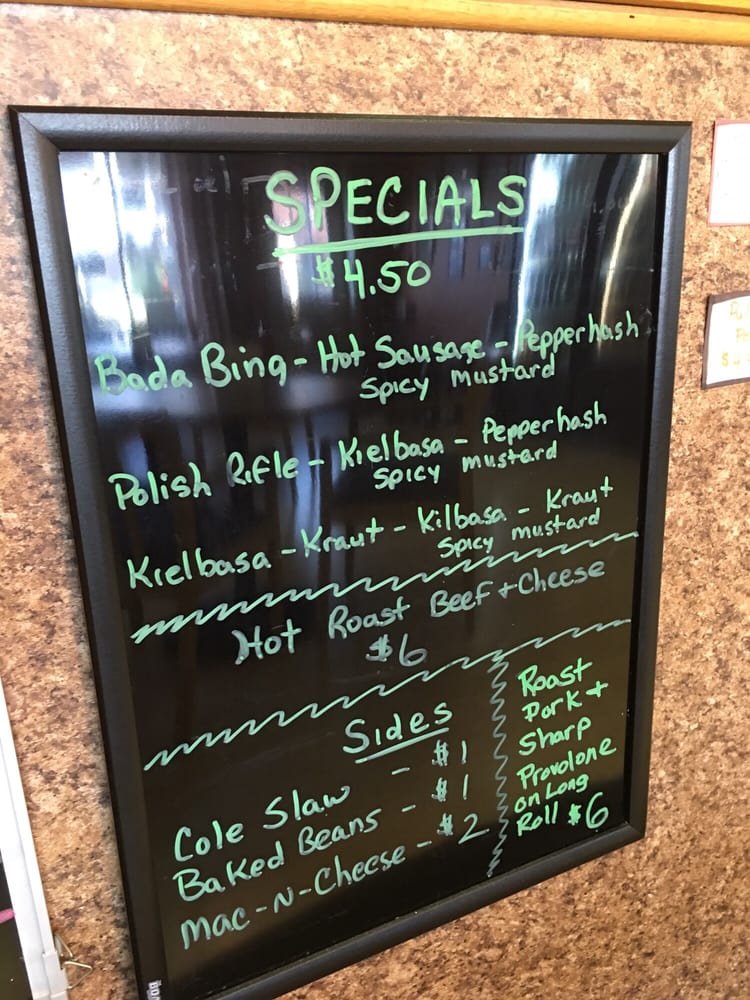 SPECIALS
$4.50
Bada Bing - Hot Sausage - Pepperhash
Spicy mustard
Polish Rifle - Kielbasa - Pepperhash
Spicy mustard
Kielbasa - Kraut - Kilbasa - Kraut
Spicy mustard
Hot Roast Beef + Cheese
$6
Sides
Cole Slaw - $1
Baked Beans - $1
Mac-N-Cheese - $2
Roast
Pork +
Sharp
Provolone
on Long
Roll $6